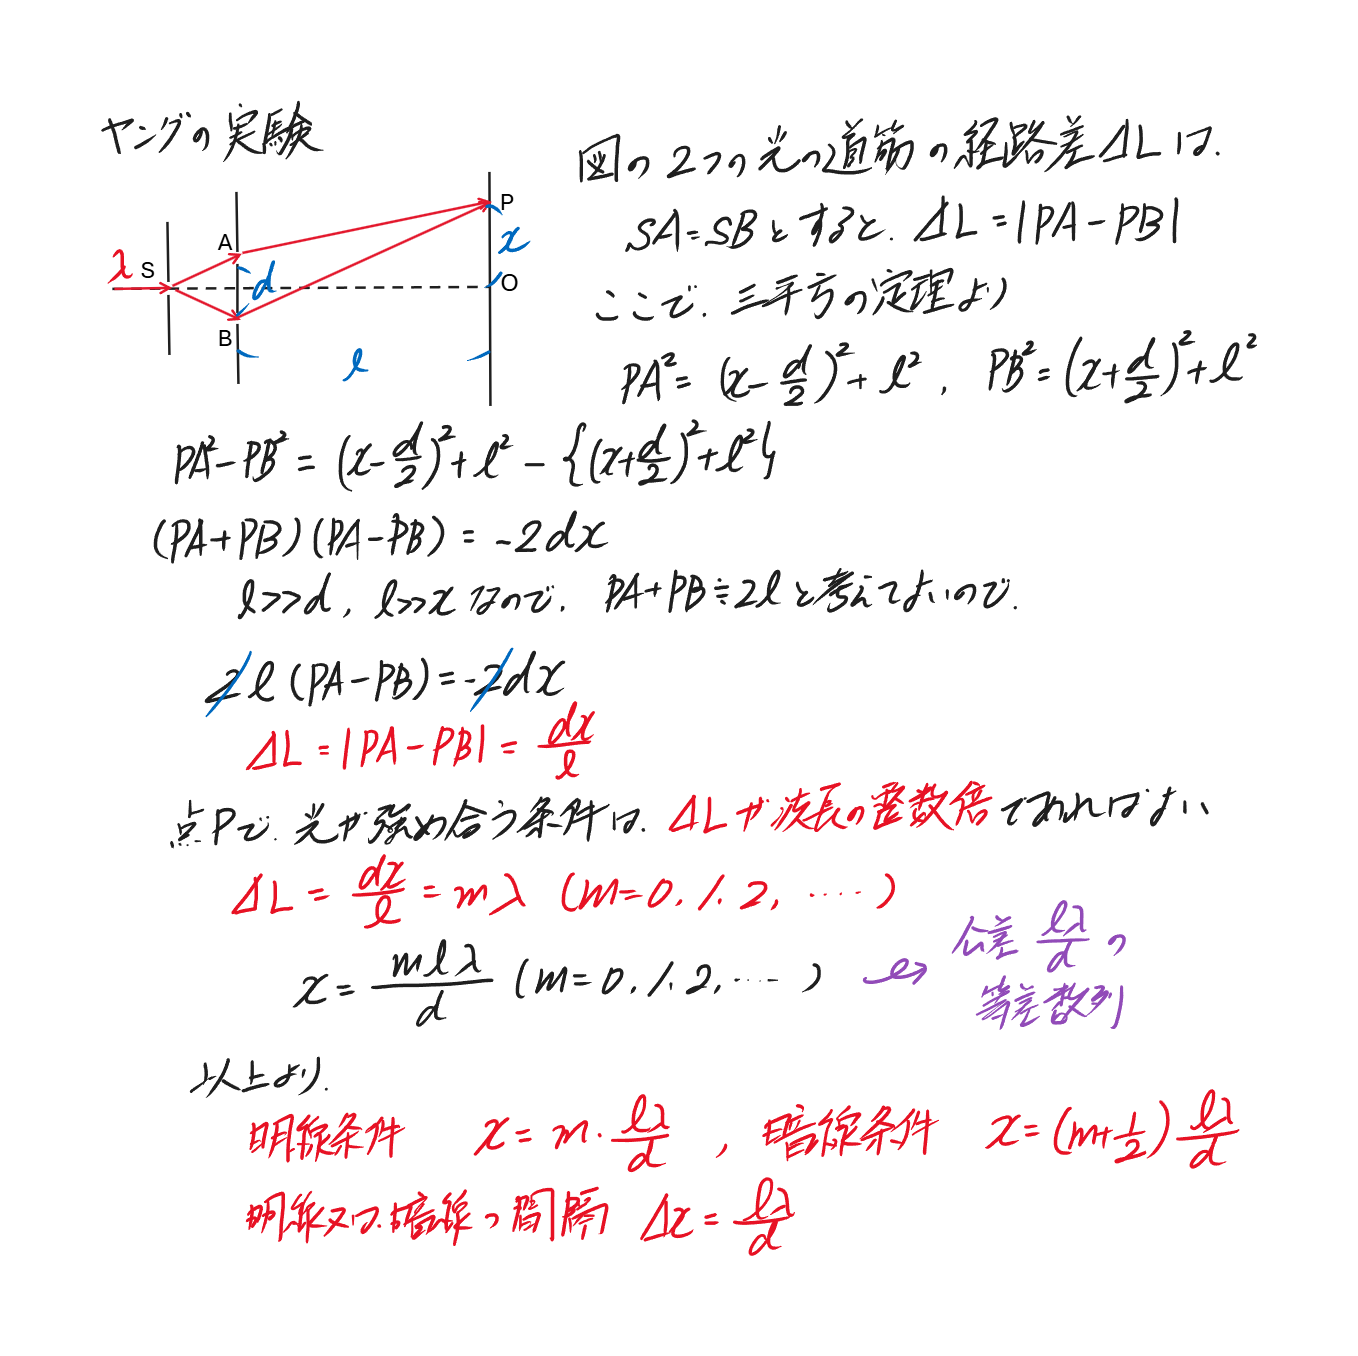 ヤングの実験
λ
S
A
B
d
l
P
x
O
図の2つの光の道筋の経路差ΔLは.
SA=SBとすると. ΔL=|PA-PB|
ここで. 三平方の定理より
PA²=(x-d/2)²+l², PB²=(x+d/2)²+l²
PA²-PB²=(x-d/2)²+l²-{(x+d/2)²+l²}
(PA+PB)(PA-PB)=-2dx
l>>d, l>>xなので. PA+PB≒2lと考えてよいので.
2l(PA-PB)=-2dx
ΔL=|PA-PB|=dx/l
点Pで. 光が強め合う条件は. ΔLが波長の整数倍であればよい
ΔL=dx/l=mλ (m=0, 1, 2, ‥‥)
x=mlλ/d (m=0, 1, 2, ‥‥)
→ 公差 lλ/d の
等差数列
以上より.
明線条件 x=m・lλ/d , 暗線条件 x=(m+1/2)lλ/d
明線又は. 暗線の間隔 Δx=lλ/d